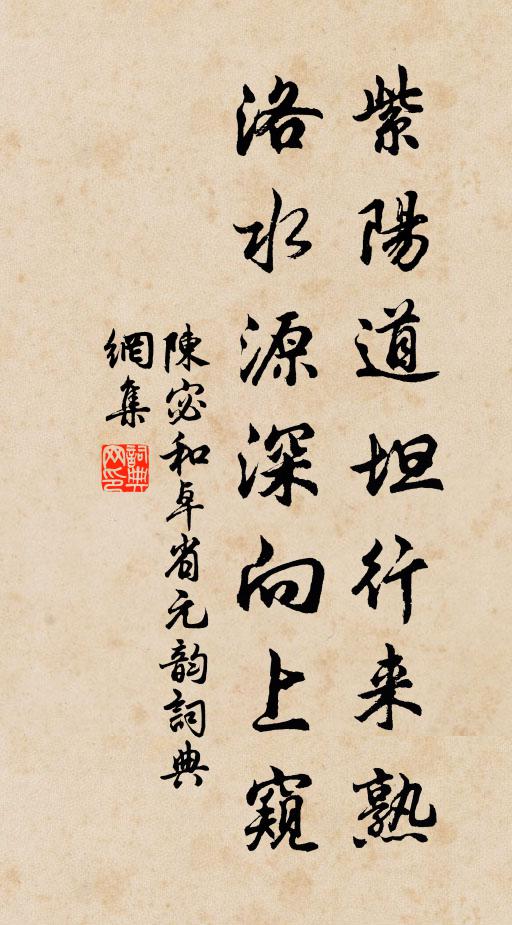 紫陽道坦行来熟
洛水源深向上窺
陳宓和卓省元韵詞典
網集
詞典
网印